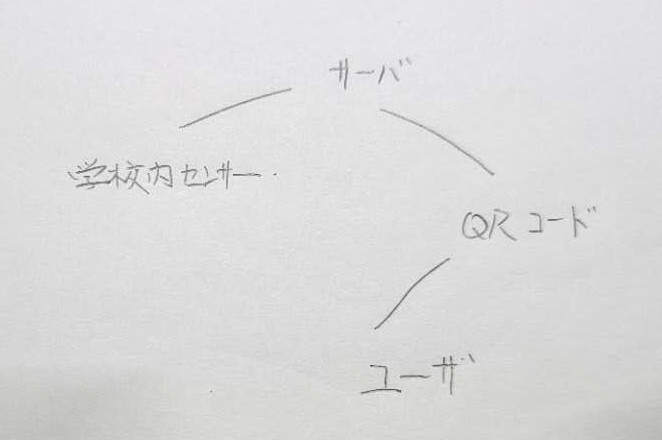 サーバ
学校内センサー
QRコード
ユーザ